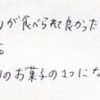 が食べられて良かった
のお菓子の1つにな